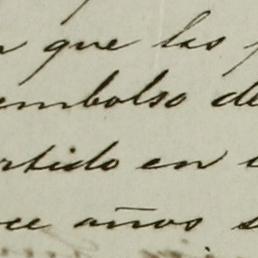 que las
embolso de
rtido en
ce años s